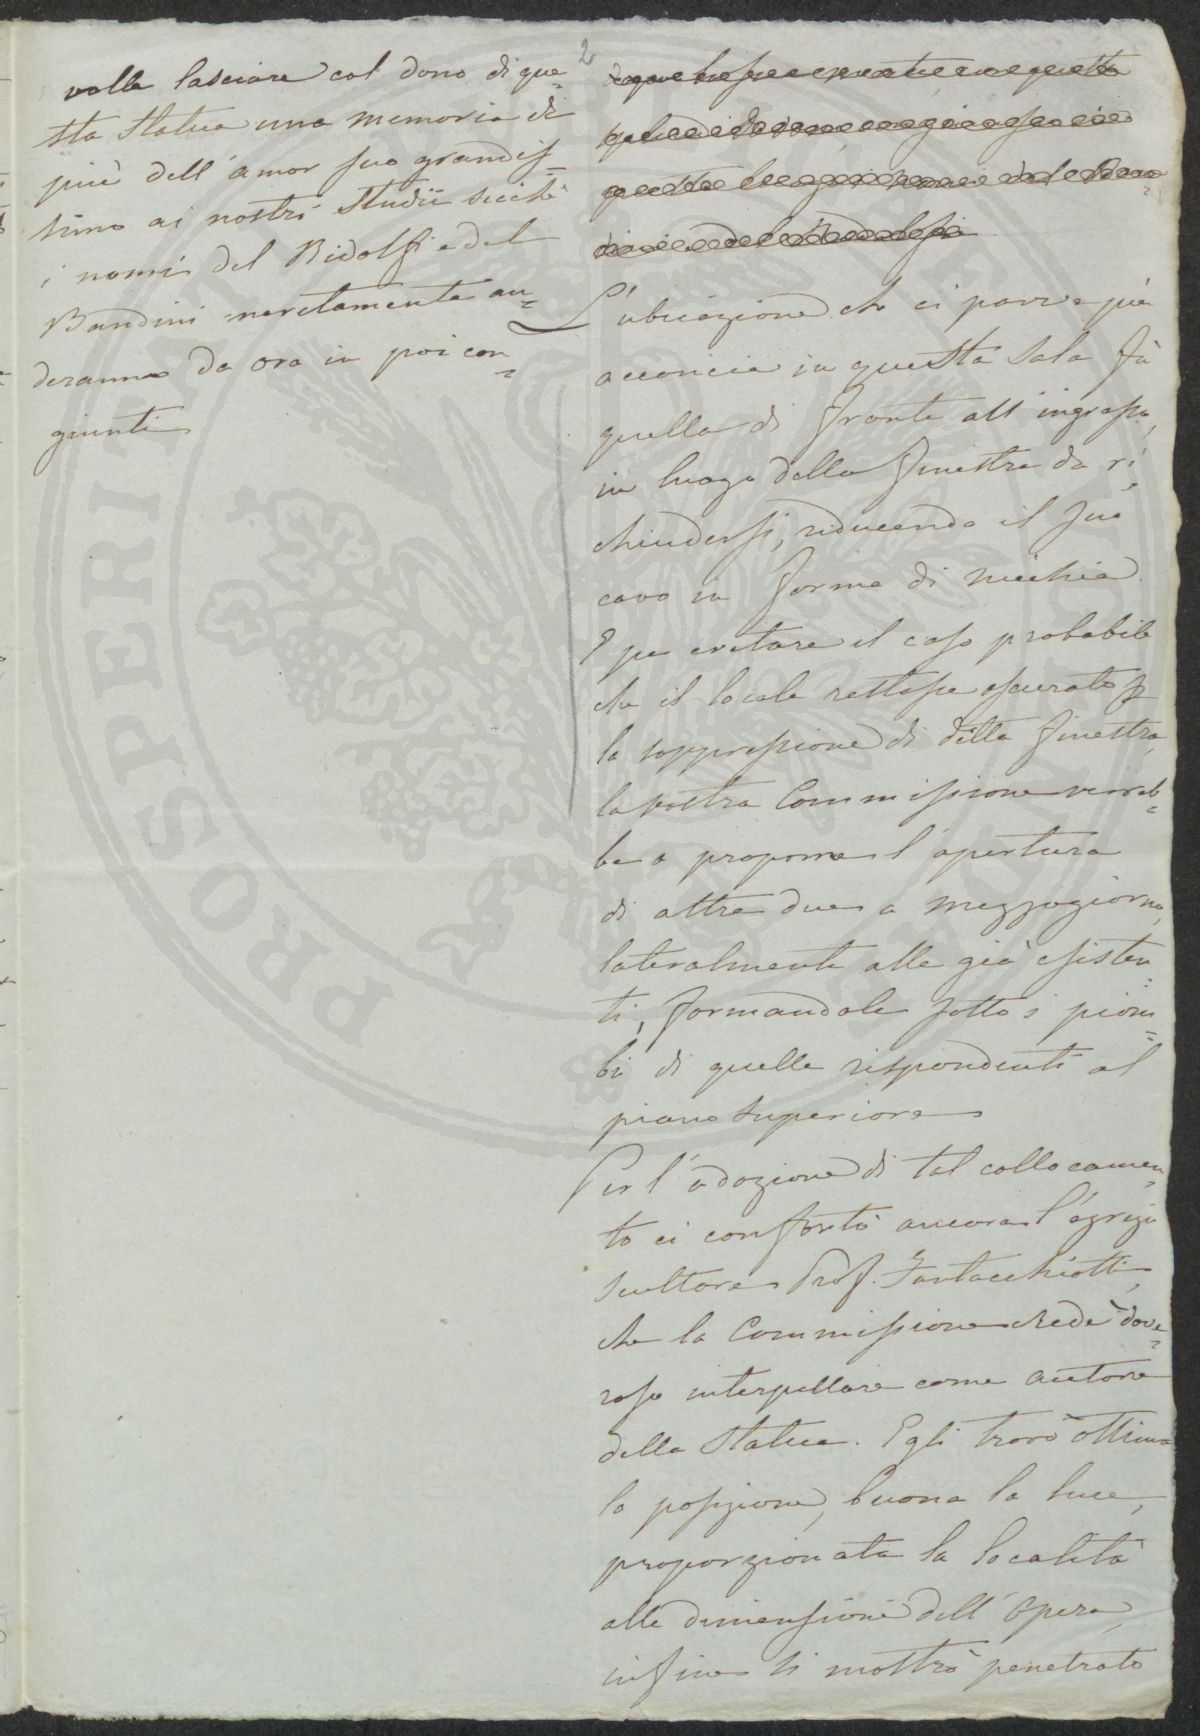 2
volle lasciare col dono di que=
sta Statua una memoria di
più dell'amor suo grandis=
simo ai nostri Studii sicchè
i nomi del Ridolfi e del
Bandini meritamente an=
deranno da ora in poi con=
giunti
L'ubicazione che ci parve più
acconcia in questa Sala fù
quella di fronte all'ingresso,
in luogo della finestra da ri
chiudersi, riducendo il suo
cavo in forma di nicchia.
E per evitare il caso probabile
che il locale restasse oscurato p
la soppressione di detta finestra,
la vostra Commissione verreb=
be a proporre l'apertura
di altre due a mezzogiorno,
lateralmente alle già esisten=
ti, formandole sotto i piom=
bi di quelle rispondenti al
piano superiore
Per l'adozione di tal collocamen=
to ci confortò ancora l'egregio
scultore Prof. Fantacchiotti,
che la Commissione credè dove=
roso interpellare come autore
della Statua. Egli trovò ottima
la posizione, buona la luce,
proporzionata la località
alle dimensioni dell'opera,
infine si mostrò penetrato
PROSPERITATI